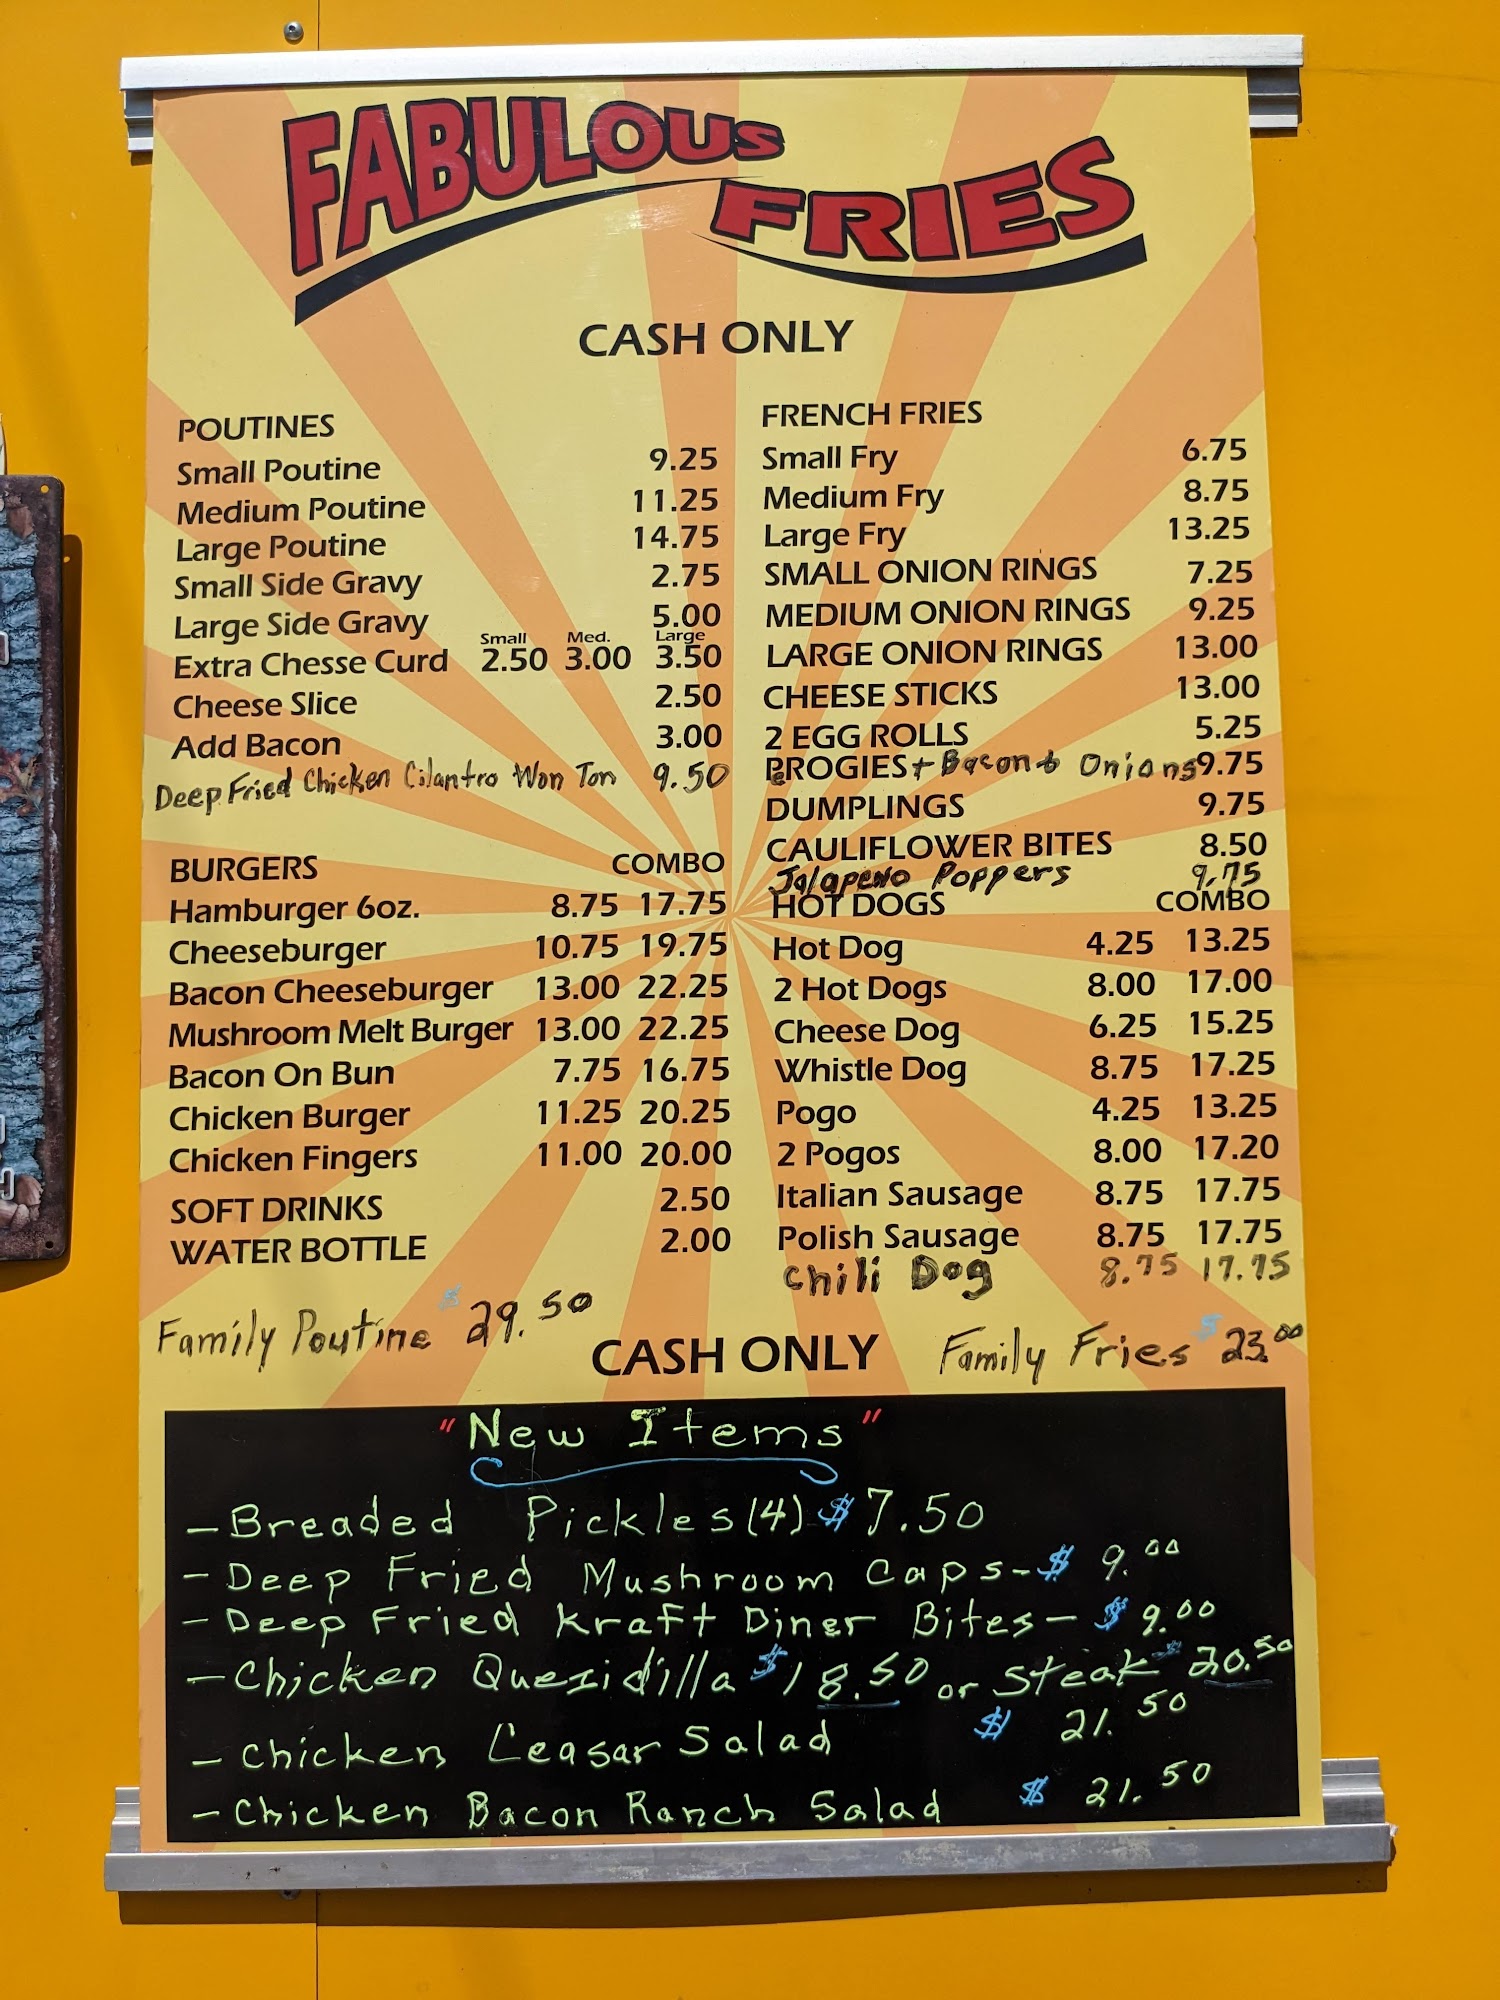 FABULOUS
FRIES
CASH ONLY
POUTINES
Small Poutine 9.25
Medium Poutine 11.25
Large Poutine 14.75
Small Side Gravy 2.75
Large Side Gravy 5.00
Small Med. Large
Extra Chesse Curd 2.50 3.00 3.50
Cheese Slice 2.50
Add Bacon 3.00
Deep Fried Chicken Cilantro Won Ton 9.50
BURGERS COMBO
Hamburger 6oz. 8.75 17.75
Cheeseburger 10.75 19.75
Bacon Cheeseburger 13.00 22.25
Mushroom Melt Burger 13.00 22.25
Bacon On Bun 7.75 16.75
Chicken Burger 11.25 20.25
Chicken Fingers 11.00 20.00
SOFT DRINKS 2.50
WATER BOTTLE 2.00
Family Poutine $29.50
FRENCH FRIES
Small Fry 6.75
Medium Fry 8.75
Large Fry 13.25
SMALL ONION RINGS 7.25
MEDIUM ONION RINGS 9.25
LARGE ONION RINGS 13.00
CHEESE STICKS 13.00
2 EGG ROLLS 5.25
PeROGIES + Bacon & Onions 9.75
DUMPLINGS 9.75
CAULIFLOWER BITES 8.50
Jalapeno Poppers 9.75
HOT DOGS COMBO
Hot Dog 4.25 13.25
2 Hot Dogs 8.00 17.00
Cheese Dog 6.25 15.25
Whistle Dog 8.75 17.25
Pogo 4.25 13.25
2 Pogos 8.00 17.20
Italian Sausage 8.75 17.75
Polish Sausage 8.75 17.75
Chili Dog 8.75 17.75
CASH ONLY
Family Fries $23.00
"New Items"
- Breaded Pickles (4) $7.50
- Deep Fried Mushroom Caps - $9.00
- Deep Fried Kraft Diner Bites - $9.00
- Chicken Quesidilla $18.50 or Steak $20.50
- Chicken Ceasar Salad $21.50
- Chicken Bacon Ranch Salad $21.50